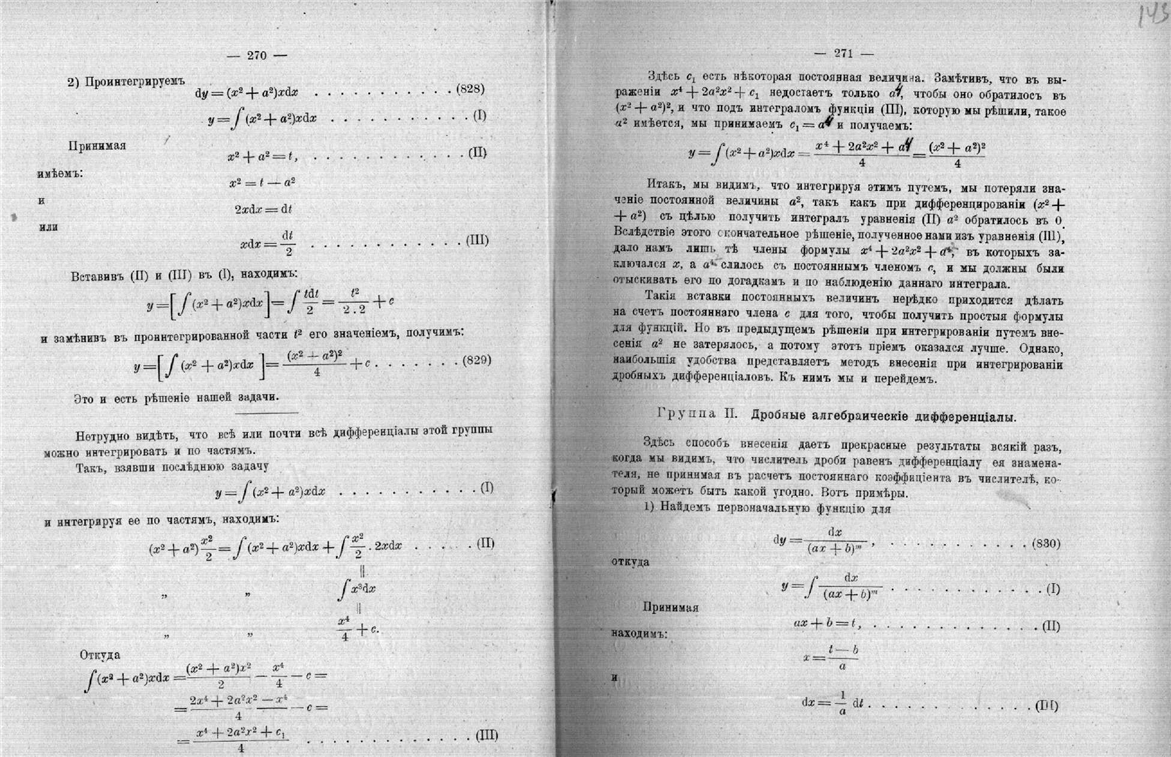 — 270 —
2) Проинтегрируемъ
dy = (x² + a²)xdx . . . . . . . . . . . (828)
y = ∫ (x² + a²)xdx . . . . . . . . . . . (I)
Принимая
x² + a² = t, . . . . . . . . . . . . . (II)
имѣемъ:
x² = t — a²
и
2xdx = dt
или
xdx = dt/2 . . . . . . . . . . . . (III)
Вставивъ (II) и (III) въ (I), находимъ:
y = [∫ (x² + a²)xdx] = ∫ tdt/2 = t²/2.2 + c
и замѣнивъ въ проинтегрированной части t² его значеніемъ, получимъ:
y = [∫ (x² + a²)xdx] = (x² + a²)²/4 + c . . . . . . . . (829)
Это и есть рѣшеніе нашей задачи.
Нетрудно видѣть, что всѣ или почти всѣ дифференціалы этой группы
можно интегрировать и по частямъ.
Такъ, взявши послѣднюю задачу
y = ∫ (x² + a²)xdx . . . . . . . . . . . (I)
и интегрируя ее по частямъ, находимъ:
(x² + a²) x²/2 = ∫ (x² + a²)xdx + ∫ x²/2 . 2xdx . . . . . (II)
||
„ „ ∫ x³dx
||
„ „ x⁴/4 + c.
Откуда
∫ (x² + a²)xdx = (x² + a²)x²/2 — x⁴/4 — c =
= 2x⁴ + 2a²x² — x⁴/4 — c =
= x⁴ + 2a²x² + c₁/4 . . . . . . . . . . . . (III)
143
— 271 —
Здѣсь c₁ есть нѣкоторая постоянная величина. Замѣтивъ, что въ вы-
раженіи x⁴ + 2a²x² + c₁ недостаетъ только a⁴, чтобы оно обратилось въ
(x² + a²)², и что подъ интеграломъ функціи (III), которую мы рѣшили, такое
a² имѣется, мы принимаемъ c₁ = a⁴ и получаемъ:
y = ∫ (x² + a²)xdx = x⁴ + 2a²x² + a⁴/4 = (x² + a²)²/4
Итакъ, мы видимъ, что интегрируя этимъ путемъ, мы потеряли зна-
ченіе постоянной величины a², такъ какъ при дифференцированіи (x² +
+ a²) съ цѣлью получить интегралъ уравненія (II) a² обратилось въ 0
Вслѣдствіе этого окончательное рѣшеніе, полученное нами изъ уравненія (III),
дало намъ лишь тѣ члены формулы x⁴ + 2a²x² + a⁴, въ которыхъ за-
ключался x, а a⁴ слилось съ постояннымъ членомъ c, и мы должны были
отыскивать его по догадкамъ и по наблюденію даннаго интеграла.
Такія вставки постоянныхъ величинъ нерѣдко приходится дѣлать
на счетъ постояннаго члена c для того, чтобы получить простыя формулы
для функцій. Но въ предыдущемъ рѣшеніи при интегрированіи путемъ вне-
сенія a² не затерялось, а потому этотъ пріемъ оказался лучше. Однако,
наибольшія удобства представляетъ методъ внесенія при интегрированіи
дробныхъ дифференціаловъ. Къ нимъ мы и перейдемъ.
Группа II. Дробные алгебраическіе дифференціалы.
Здѣсь способъ внесенія даетъ прекрасные результаты всякій разъ,
когда мы видимъ, что числитель дроби равенъ дифференціалу ея знамена-
теля, не принимая въ расчетъ постояннаго коэффиціента въ числителѣ, ко-
торый можетъ быть какой угодно. Вотъ примѣры.
1) Найдемъ первоначальную функцію для
dy = dx/(ax + b)ᵐ, . . . . . . . . . . . . (830)
откуда
y = ∫ dx/(ax + b)ᵐ . . . . . . . . . . . (I)
Принимая
ax + b = t, . . . . . . . . . . . . . (II)
находимъ:
x = t — b/a
и
dx = 1/a dt . . . . . . . . . . . . (III)